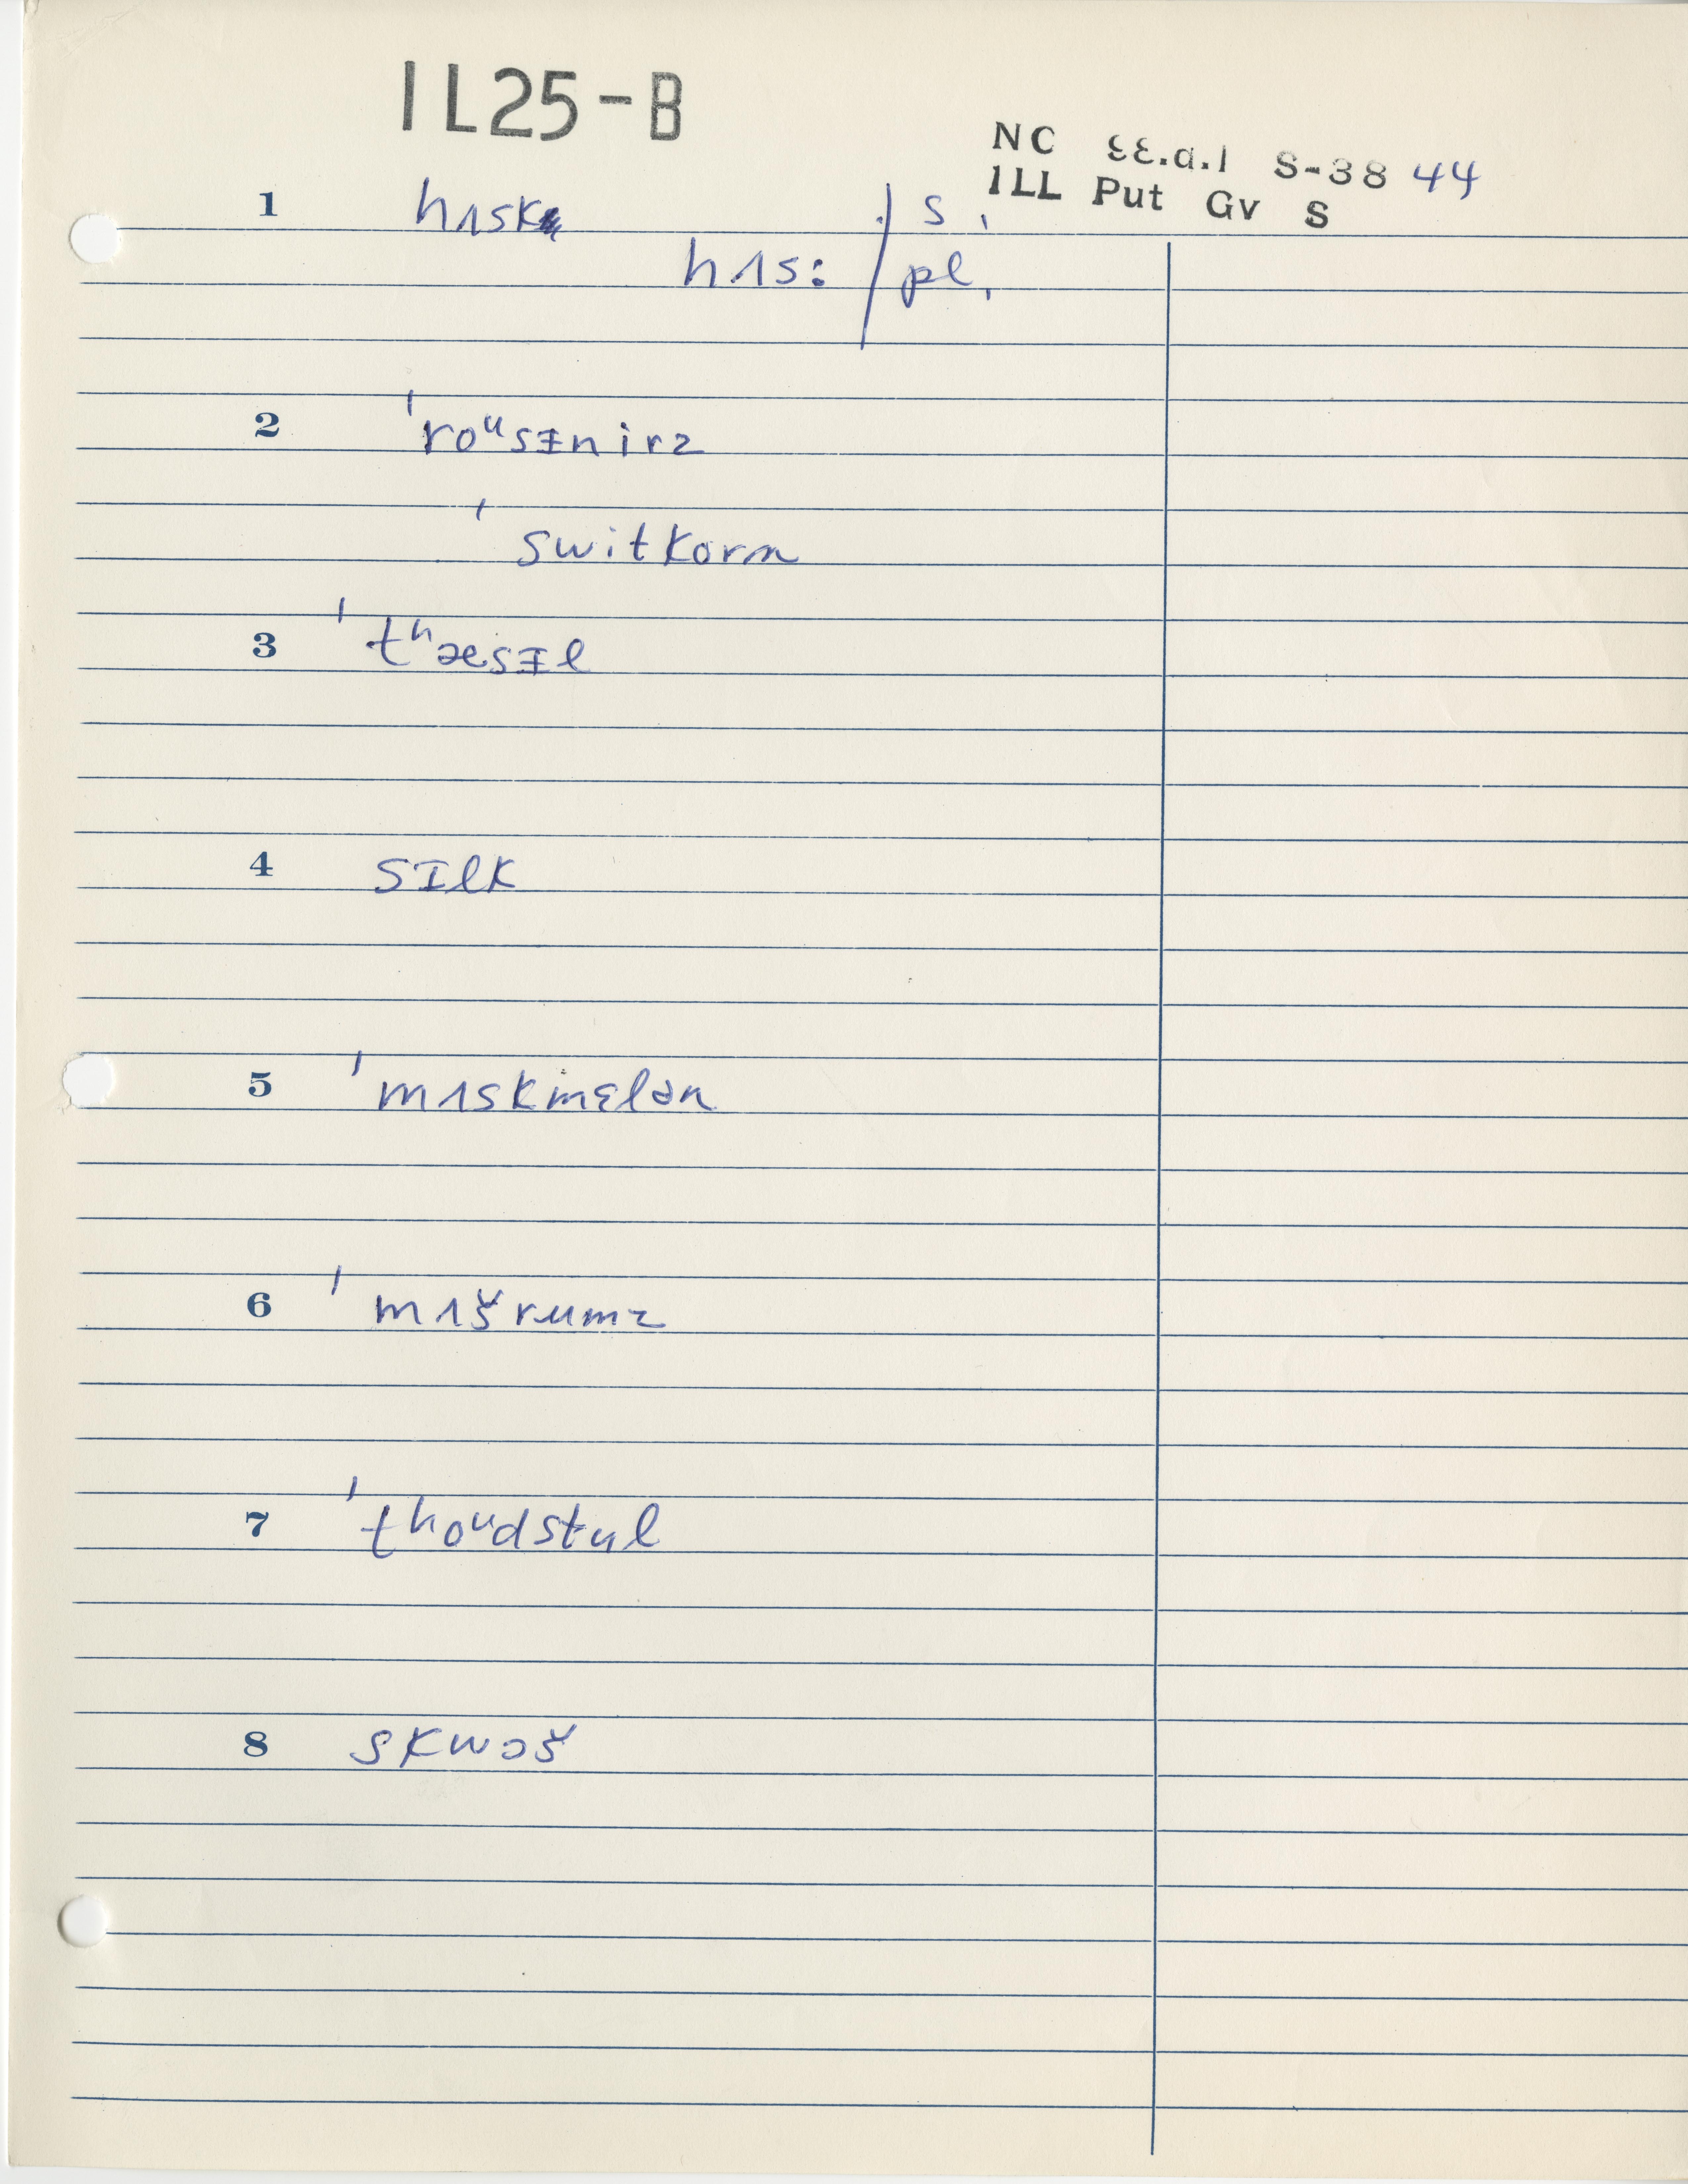 1L25-B
NC εε.d.l S-38 44
1LL Put Gv S
1 hʌsk / s.
hʌs: / pl.
2 ˈroᵘsɨnirz
ˈswitkorn
3 ˈtʰæsɨl
4 sɪlk
5 ˈmʌskmɛlən
6 ˈmʌšrumz
7 ˈtʰoᵘdstul
8 skwɔš